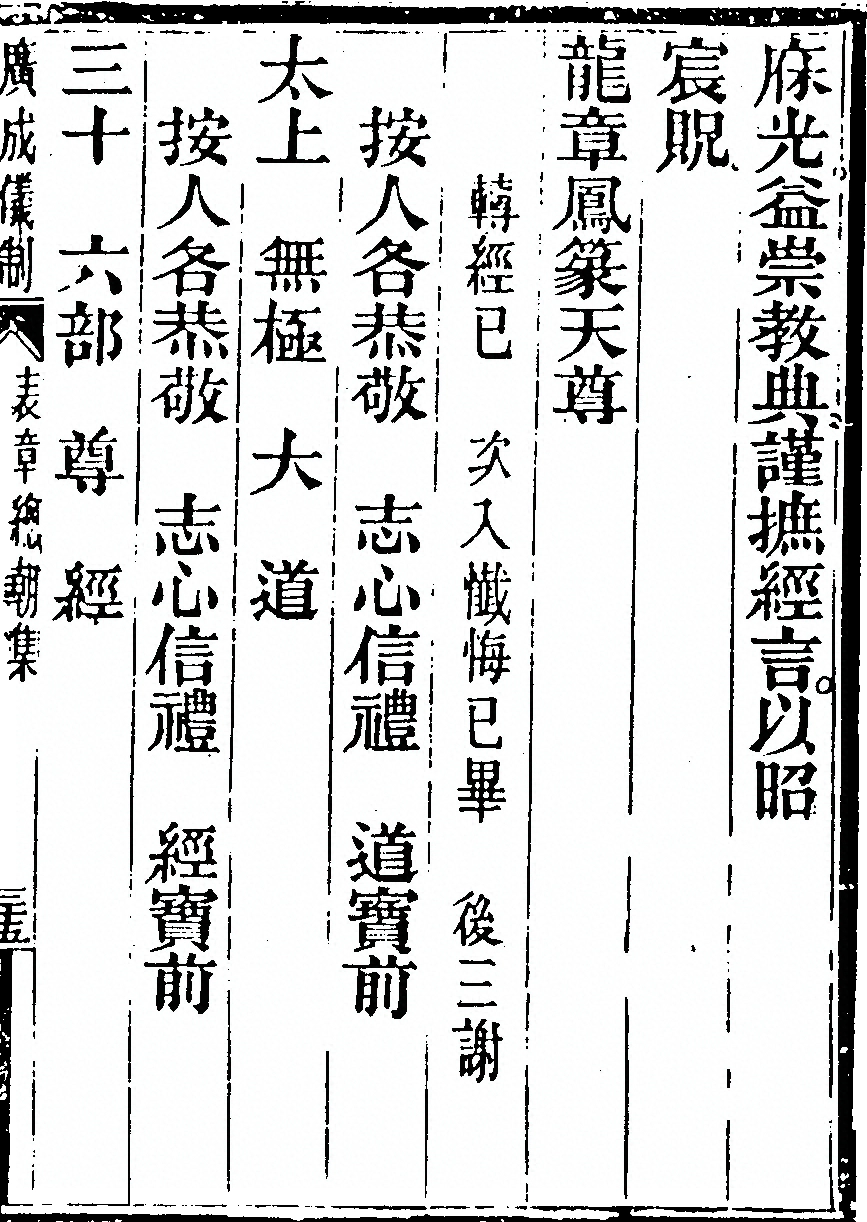 庥光益崇教典謹摭經言。以昭
宸貺、
龍章鳳篆天尊
轉經已 次入懺悔已畢 後三謝
按人各恭敬 志心信禮 道寶前
太上 無極 大 道
按人各恭敬 志心信禮 經寶前
三十 六部 尊 經
廣成儀制 表章總朝集 三五